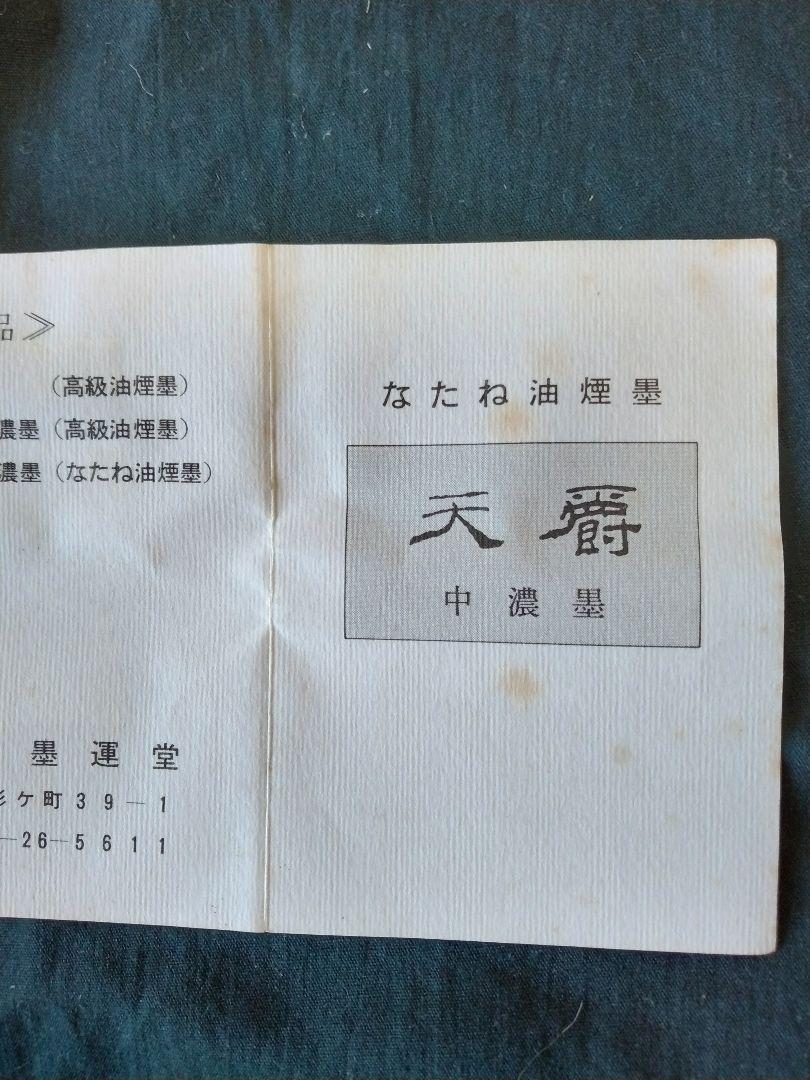 品≫
(高級油煙墨)
濃墨(高級油煙墨)
濃墨(なたね油煙墨)
墨運堂
杉ケ町39—1
—26—5611
なたね油煙墨
天爵
中濃墨